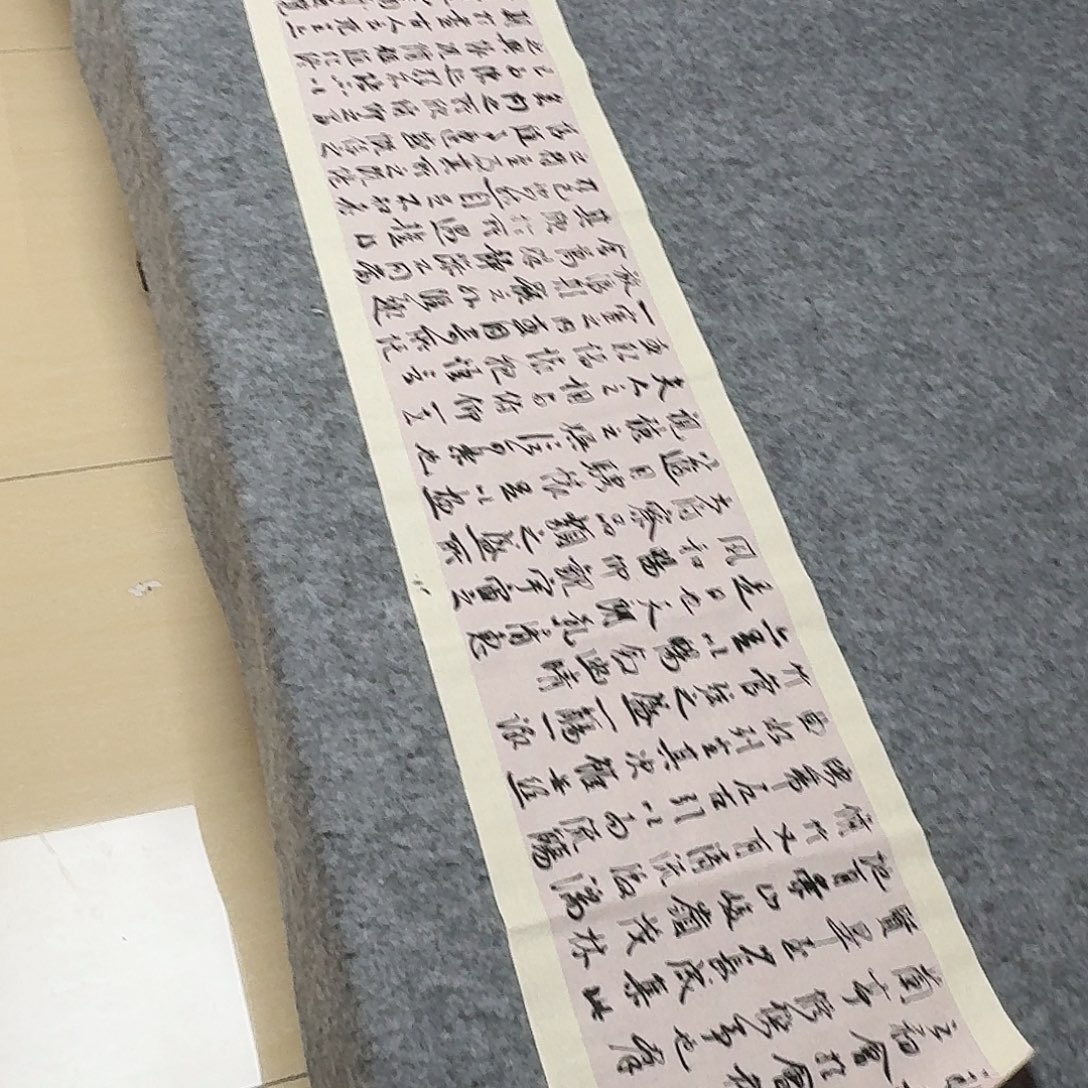 之初會於會
蘭亭脩禊事也羣
賢畢至少長咸集此
地有崇山峻嶺茂林
脩竹又有清流激湍
映帶左右引以為流觴
曲水列坐其次雖無絲
竹管弦之盛一觴一詠
亦足以暢敘幽情
是日也天朗氣清惠
風和暢仰觀宇宙之
大俯察品類之盛所
以遊目騁懷足以極
視聽之娛信可樂也
夫人之相與俯仰一世
或取諸懷抱悟言
一室之內或因寄所託
放浪形骸之外雖趣
舍萬殊靜躁不同當
其欣於所遇暫得
於己快然自足不知老
之將至及其所之既倦
情隨事遷感慨係之
矣向之所欣俛仰之間